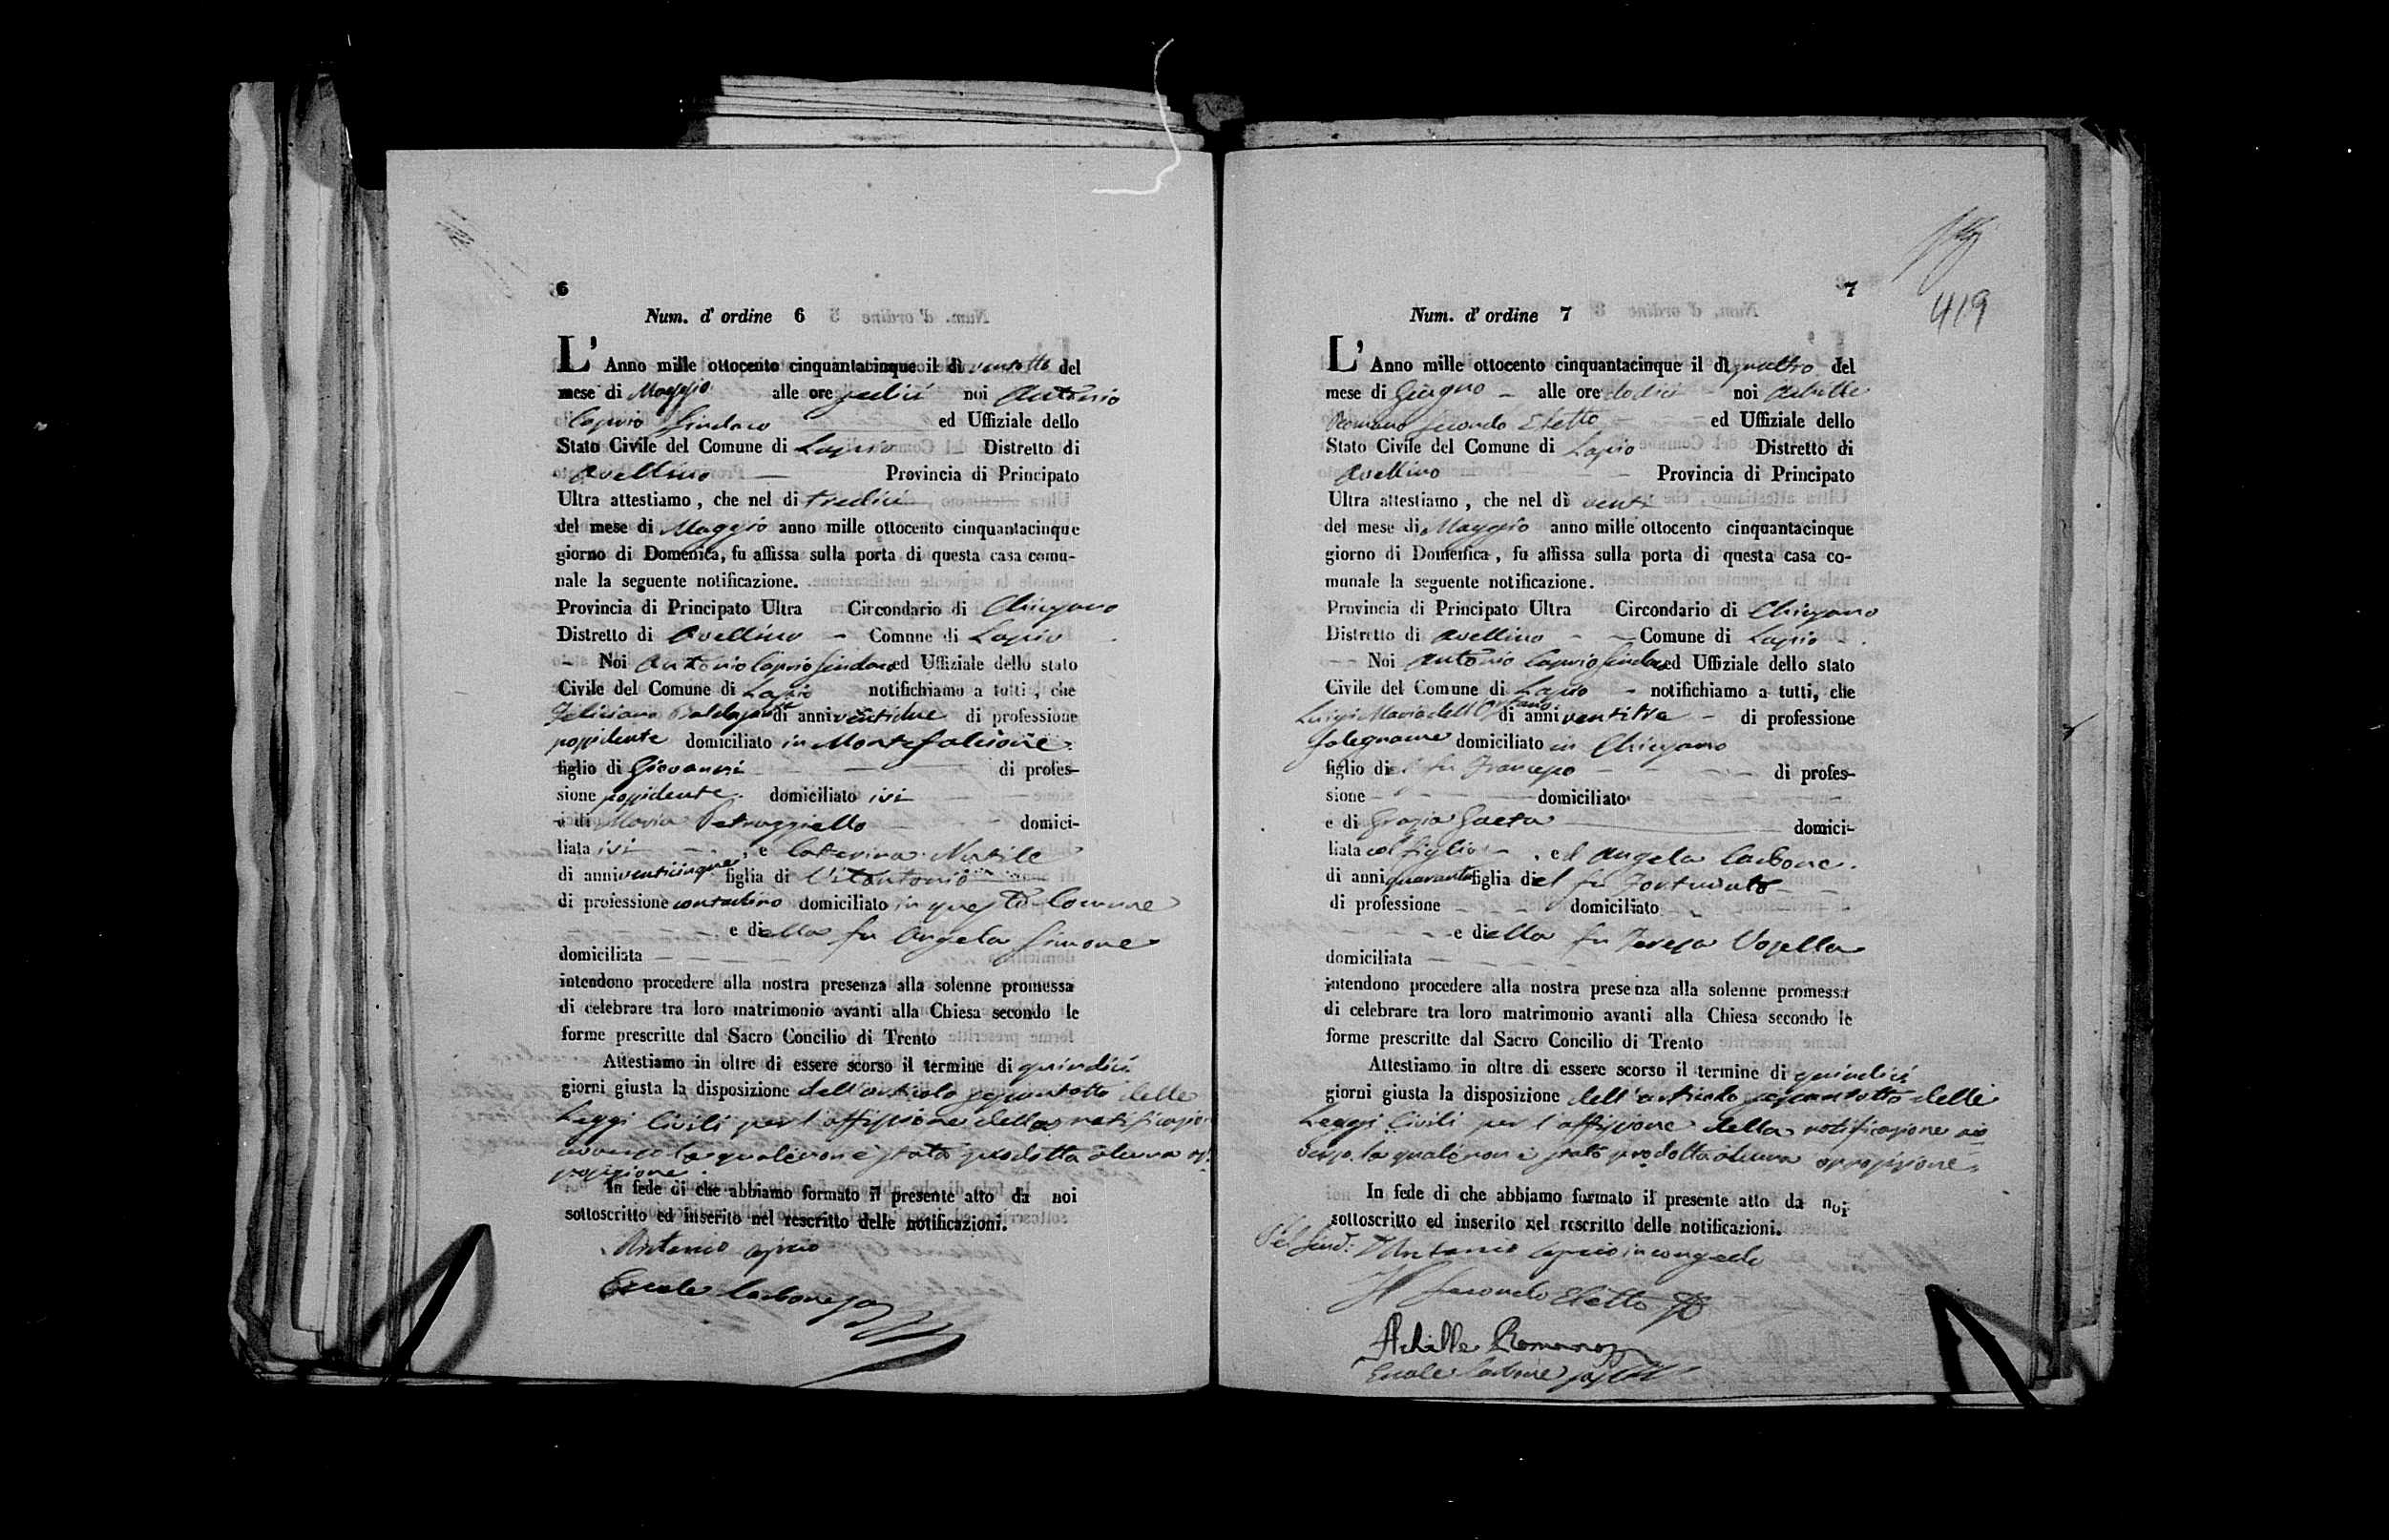 6
Num. d' ordine 6
L' Anno mille ottocento cinquantacinque il dì ventotto del
mese di Maggio alle ore sedici noi Antonio
Caprio Sindaco ed Uffiziale dello
Stato Civile del Comune di Lapio Distretto di
Avellino Provincia di Principato
Ultra attestiamo, che nel dì tredici
del mese di Maggio anno mille ottocento cinquantacinque
giorno di Domenica, fu affissa sulla porta di questa casa comu-
nale la seguente notificazione.
Provincia di Principato Ultra Circondario di Chiusano
Distretto di Avellino Comune di Lapio
Noi Antonio Caprio Sindaco ed Uffiziale dello stato
Civile del Comune di Lapio notifichiamo a tutti, che
Feliciano Baldassarre di anni ventidue di professione
possidente domiciliato in Montefalcione
figlio di Giovanni di profes-
sione possidente domiciliato ivi
e di Maria Petruzziello domici-
liata ivi, e Caterina Natile
di anni venticinque figlia di Vitantonio
di professione contadino domiciliato in questo Comune
e di ella fu Angela Simone
domiciliata
intendono procedere alla nostra presenza alla solenne promessa
di celebrare tra loro matrimonio avanti alla Chiesa secondo le
forme prescritte dal Sacro Concilio di Trento
Attestiamo in oltre di essere scorso il termine di quindici
giorni giusta la disposizione dell'articolo sessantotto delle
Leggi Civili per l'affissione della notificazione
avverso la quale non è stata prodotta alcuna op-
posizione.
In fede di che abbiamo formato il presente atto da noi
sottoscritto ed inserito nel rescritto delle notificazioni.
Antonio Caprio
Ercole Carbone
7
419
Num. d' ordine 7
L' Anno mille ottocento cinquantacinque il dì quattro del
mese di Giugno alle ore dodici noi Achille
Romano secondo Eletto ed Uffiziale dello
Stato Civile del Comune di Lapio Distretto di
Avellino Provincia di Principato
Ultra attestiamo, che nel dì venti
del mese di Maggio anno mille ottocento cinquantacinque
giorno di Domenica, fu affissa sulla porta di questa casa co-
munale la seguente notificazione.
Provincia di Principato Ultra Circondario di Chiusano
Distretto di Avellino Comune di Lapio
Noi Antonio Caprio Sindaco ed Uffiziale dello stato
Civile del Comune di Lapio notifichiamo a tutti, che
Luigi Maria dell'Orfano di anni ventitre di professione
falegname domiciliato in Chiusano
figlio di el fu Francesco di profes-
sione domiciliato
e di Grazia Gaeta domici-
liata col figlio, ed Angela Carbone
di anni quaranta figlia di el fu Fortunato
di professione domiciliato
e di ella fu Teresa Vosella
domiciliata
intendono procedere alla nostra presenza alla solenne promessa
di celebrare tra loro matrimonio avanti alla Chiesa secondo le
forme prescritte dal Sacro Concilio di Trento
Attestiamo in oltre di essere scorso il termine di quindici
giorni giusta la disposizione dell'articolo sessantotto delle
Leggi Civili per l'affissione della notificazione av
verso la quale non è stata prodotta alcuna opposizione.
In fede di che abbiamo formato il presente atto da noi
sottoscritto ed inserito nel rescritto delle notificazioni.
Pel Sind: Antonio Caprio in congedo
Il secondo Eletto
Achille Romano
Ercole Carbone